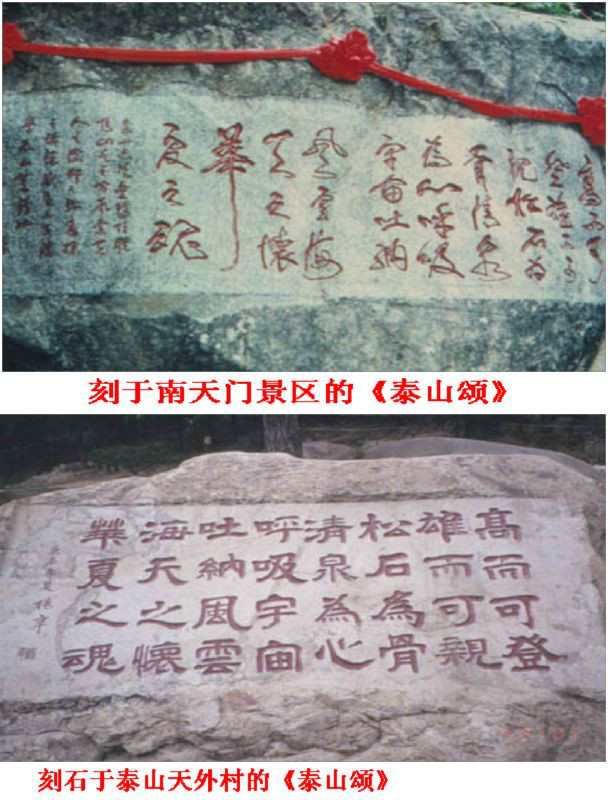 高而可
登雄而可
親松石为
骨清泉
为心呼吸
宇宙吐纳
风云海
天之懷
華
夏之魂
刻于南天门景区的《泰山颂》
高而可登
雄而可親
松石為骨
清泉為心
呼吸宇宙
吐納風雲
海天之懷
華夏之魂
刻石于泰山天外村的《泰山颂》